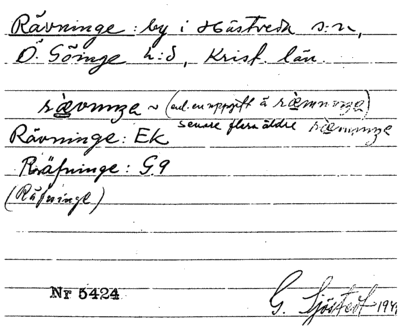 Rävninge: by i Hästveda s:n,
Ö. Göinge h:d, Krist. län.
rævınŋa ~ (enl. en uppgift ä ræmınŋa)
senare flera äldre ræmınŋa
Rävninge: Ek
Räfninge: G9
(Räfninge)
Nr 5424
G. Sjöstedt